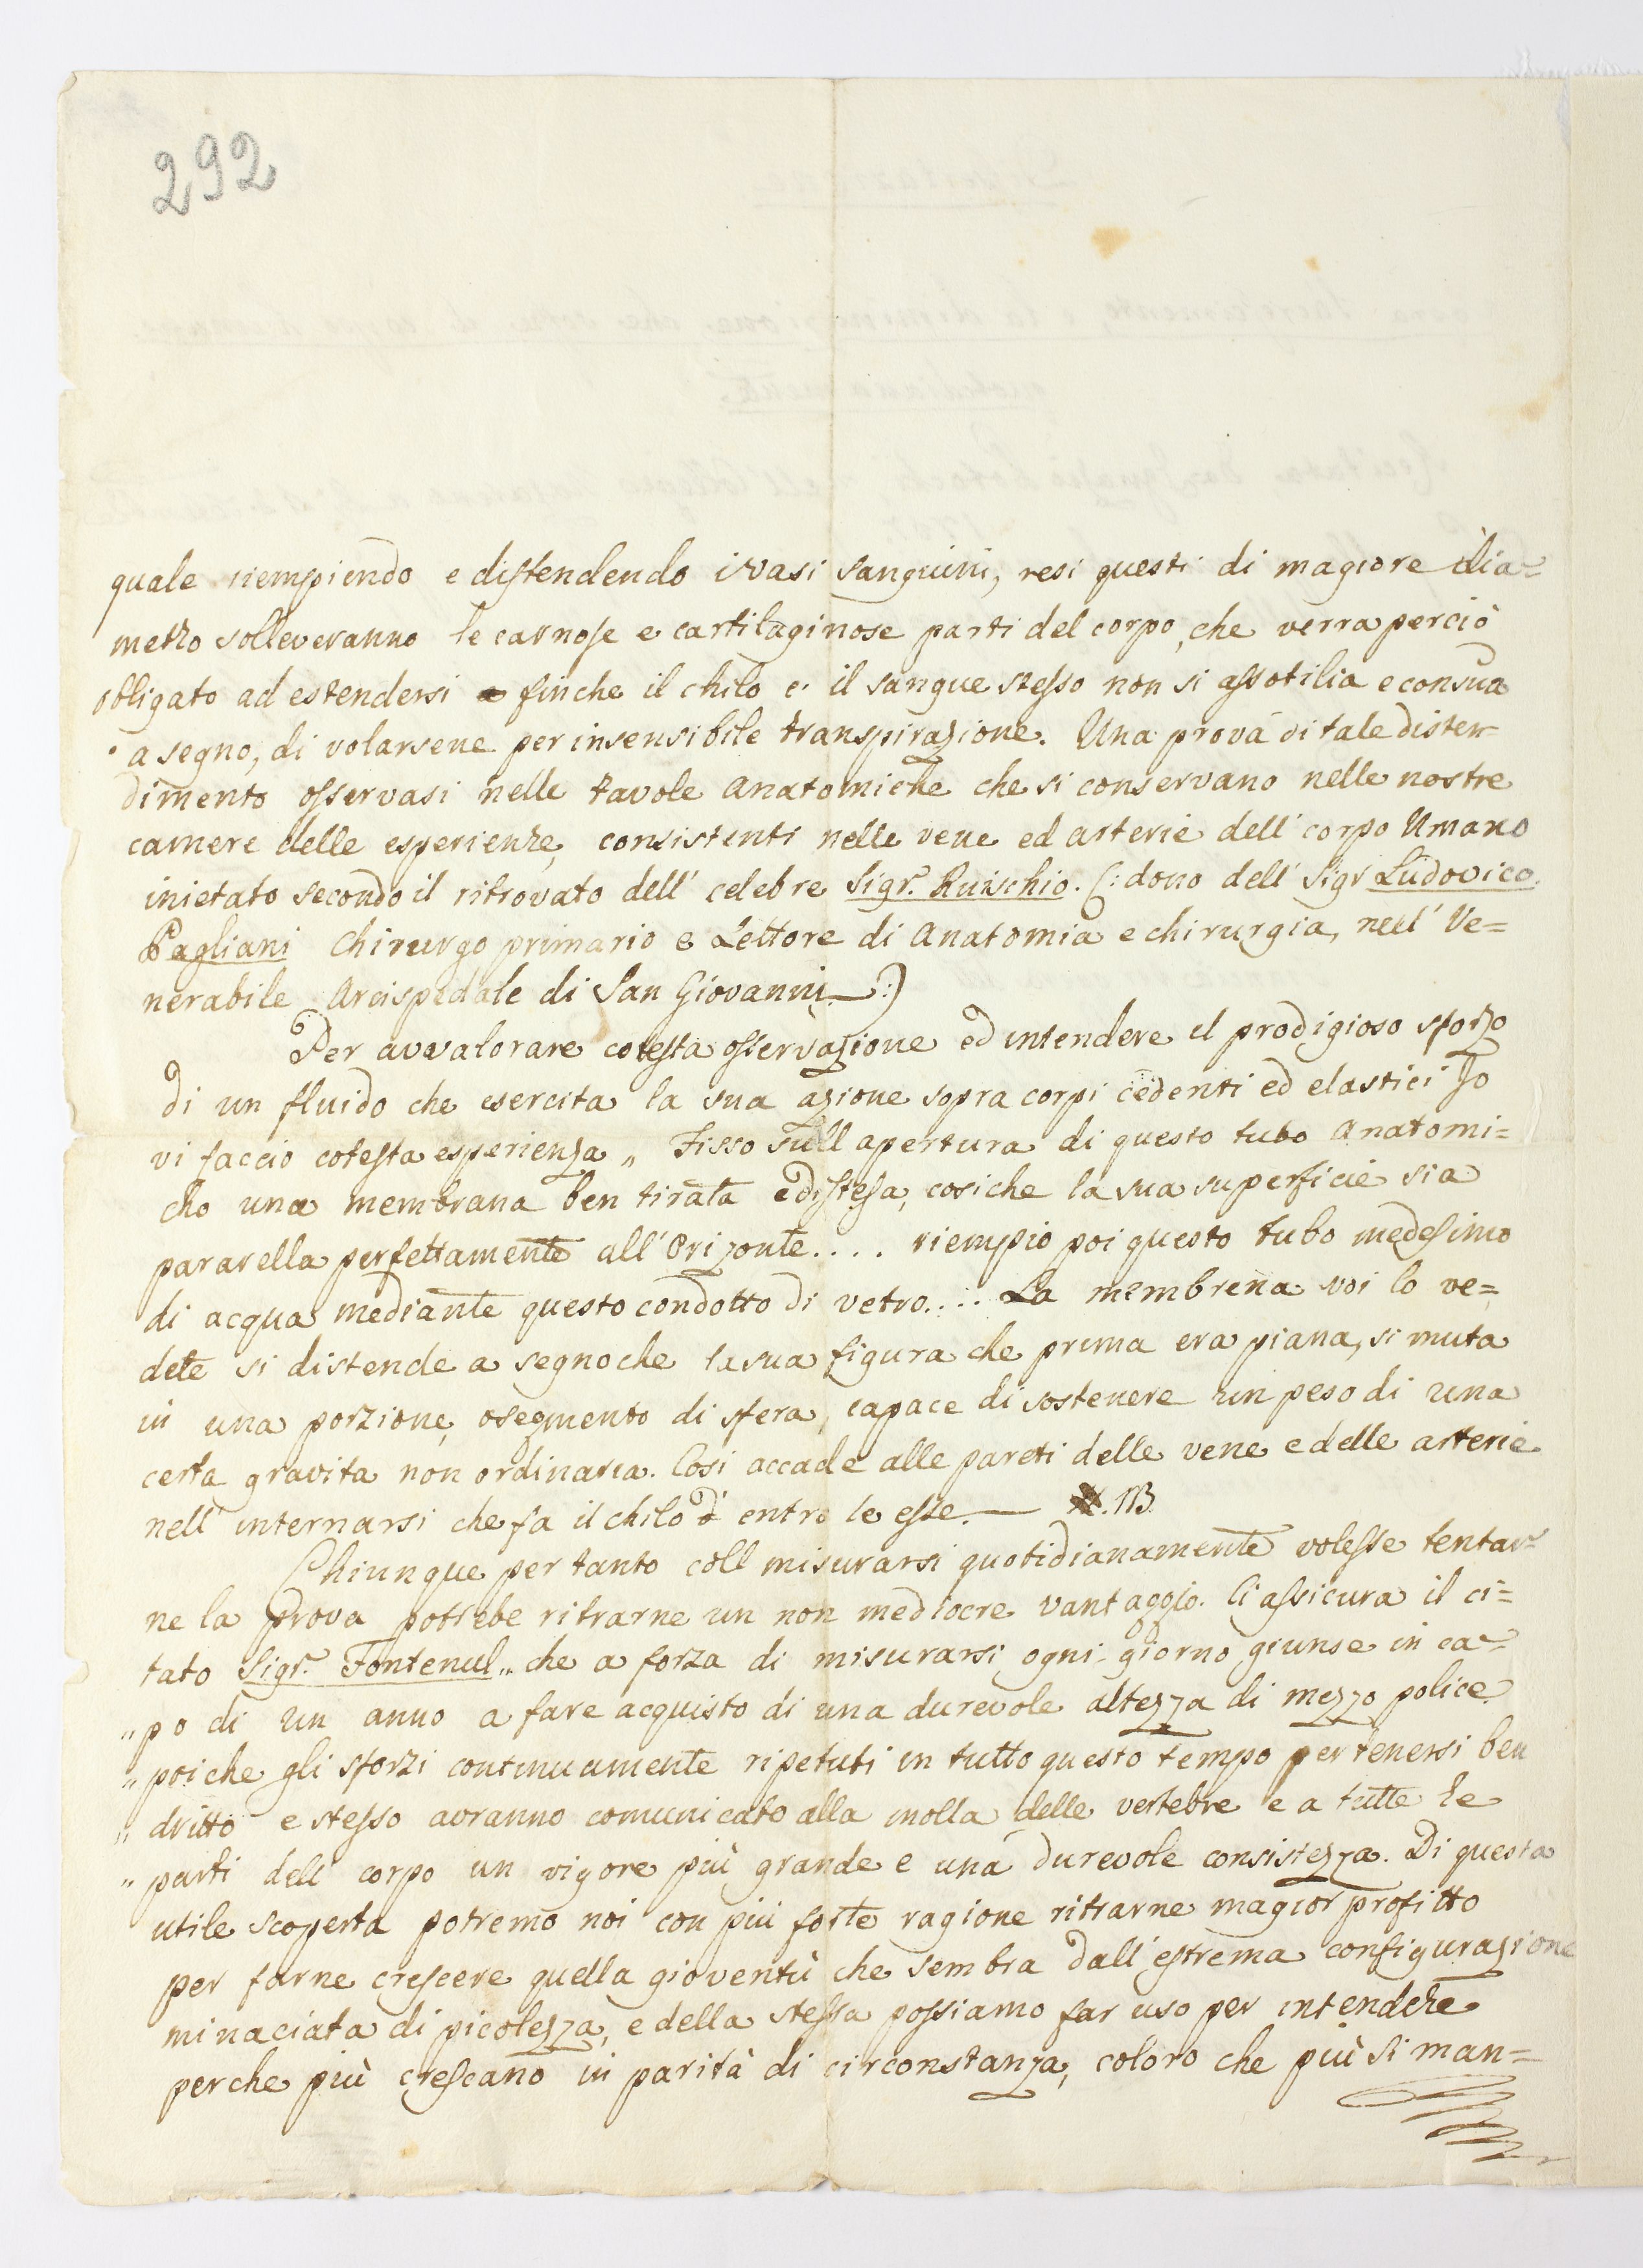 292
quale riempiendo e distendendo i vasi sanguini, resi questi di magiore dia-
metro solleveranno le carnose e cartilaginose parti del corpo, che verra perciò
obligato ad estendersi finche il chilo e il sangue stesso non si assotilia e consuma
a segno, di volarsene per insensibile transpirazione. Una prova di tale disten-
dimento osservasi nelle tavole anatomiche che si conservano nelle nostre
camere delle esperienze, consistenti nelle vene ed arterie dell' corpo Umano
inietato secondo il ritrovato dell' celebre Sigr. Ruischio. (: dono dell' Sigr Ludovico
Pagliani Chirurgo primario e Lettore di Anatomia e chirurgia, nell' Ve=
nerabile Arcispedale di San Giovanni :)
Per avvalorare cotesta osservazione ed intendere il prodigioso sforzo
di un fluido che esercita la sua azione sopra corpi cedenti ed elastici Jo
vi faccio cotesta esperienza „ Fisso sull apertura di questo tubo Anatomi=
cho una membrana ben tirata e distesa, cosiche la sua superficie sia
pararella perfettamente all' Orizonte.... riempio poi questo tubo medesimo
di acqua mediante questo condotto di vetro.... La membrena voi lo ve=
dete si distende a segno che la sua figura che prima era piana, si muta
in una porzione, o segmento di sfera, capace di sostenere un peso di una
certa gravita non ordinaria. Cosi accade alle pareti delle vene e delle arterie
nell' internarsi che fa il chilo d' entro le esse. — NB.
Chiunque per tanto coll misurarsi quotidianamente volesse tentar-
ne la prova potrebe ritrarne un non mediocre vantaggio. Ci assicura il ci=
tato Sigr. Fontenul „ che a forza di misurarsi ogni giorno giunse in ca-
„ po di un anno a fare acquisto di una durevole altezza di mezzo police
„ poiche gli sforzi continuamente ripetuti in tutto questo tempo per tenersi ben
„ dritto e stesso avranno comunicato alla molla delle vertebre e a tutte le
„ parti dell' corpo un vigore più grande e una durevole consistezza. Di questa
utile scoperta potremo noi con piu forte ragione ritrarne magior profitto
per farne crescere quella gioventù che sembra dall' estrema configurazione
minaciata di picolezza, e della stessa possiamo far uso per intendere
perche più crescano in parità di circonstanza, coloro che più si man=